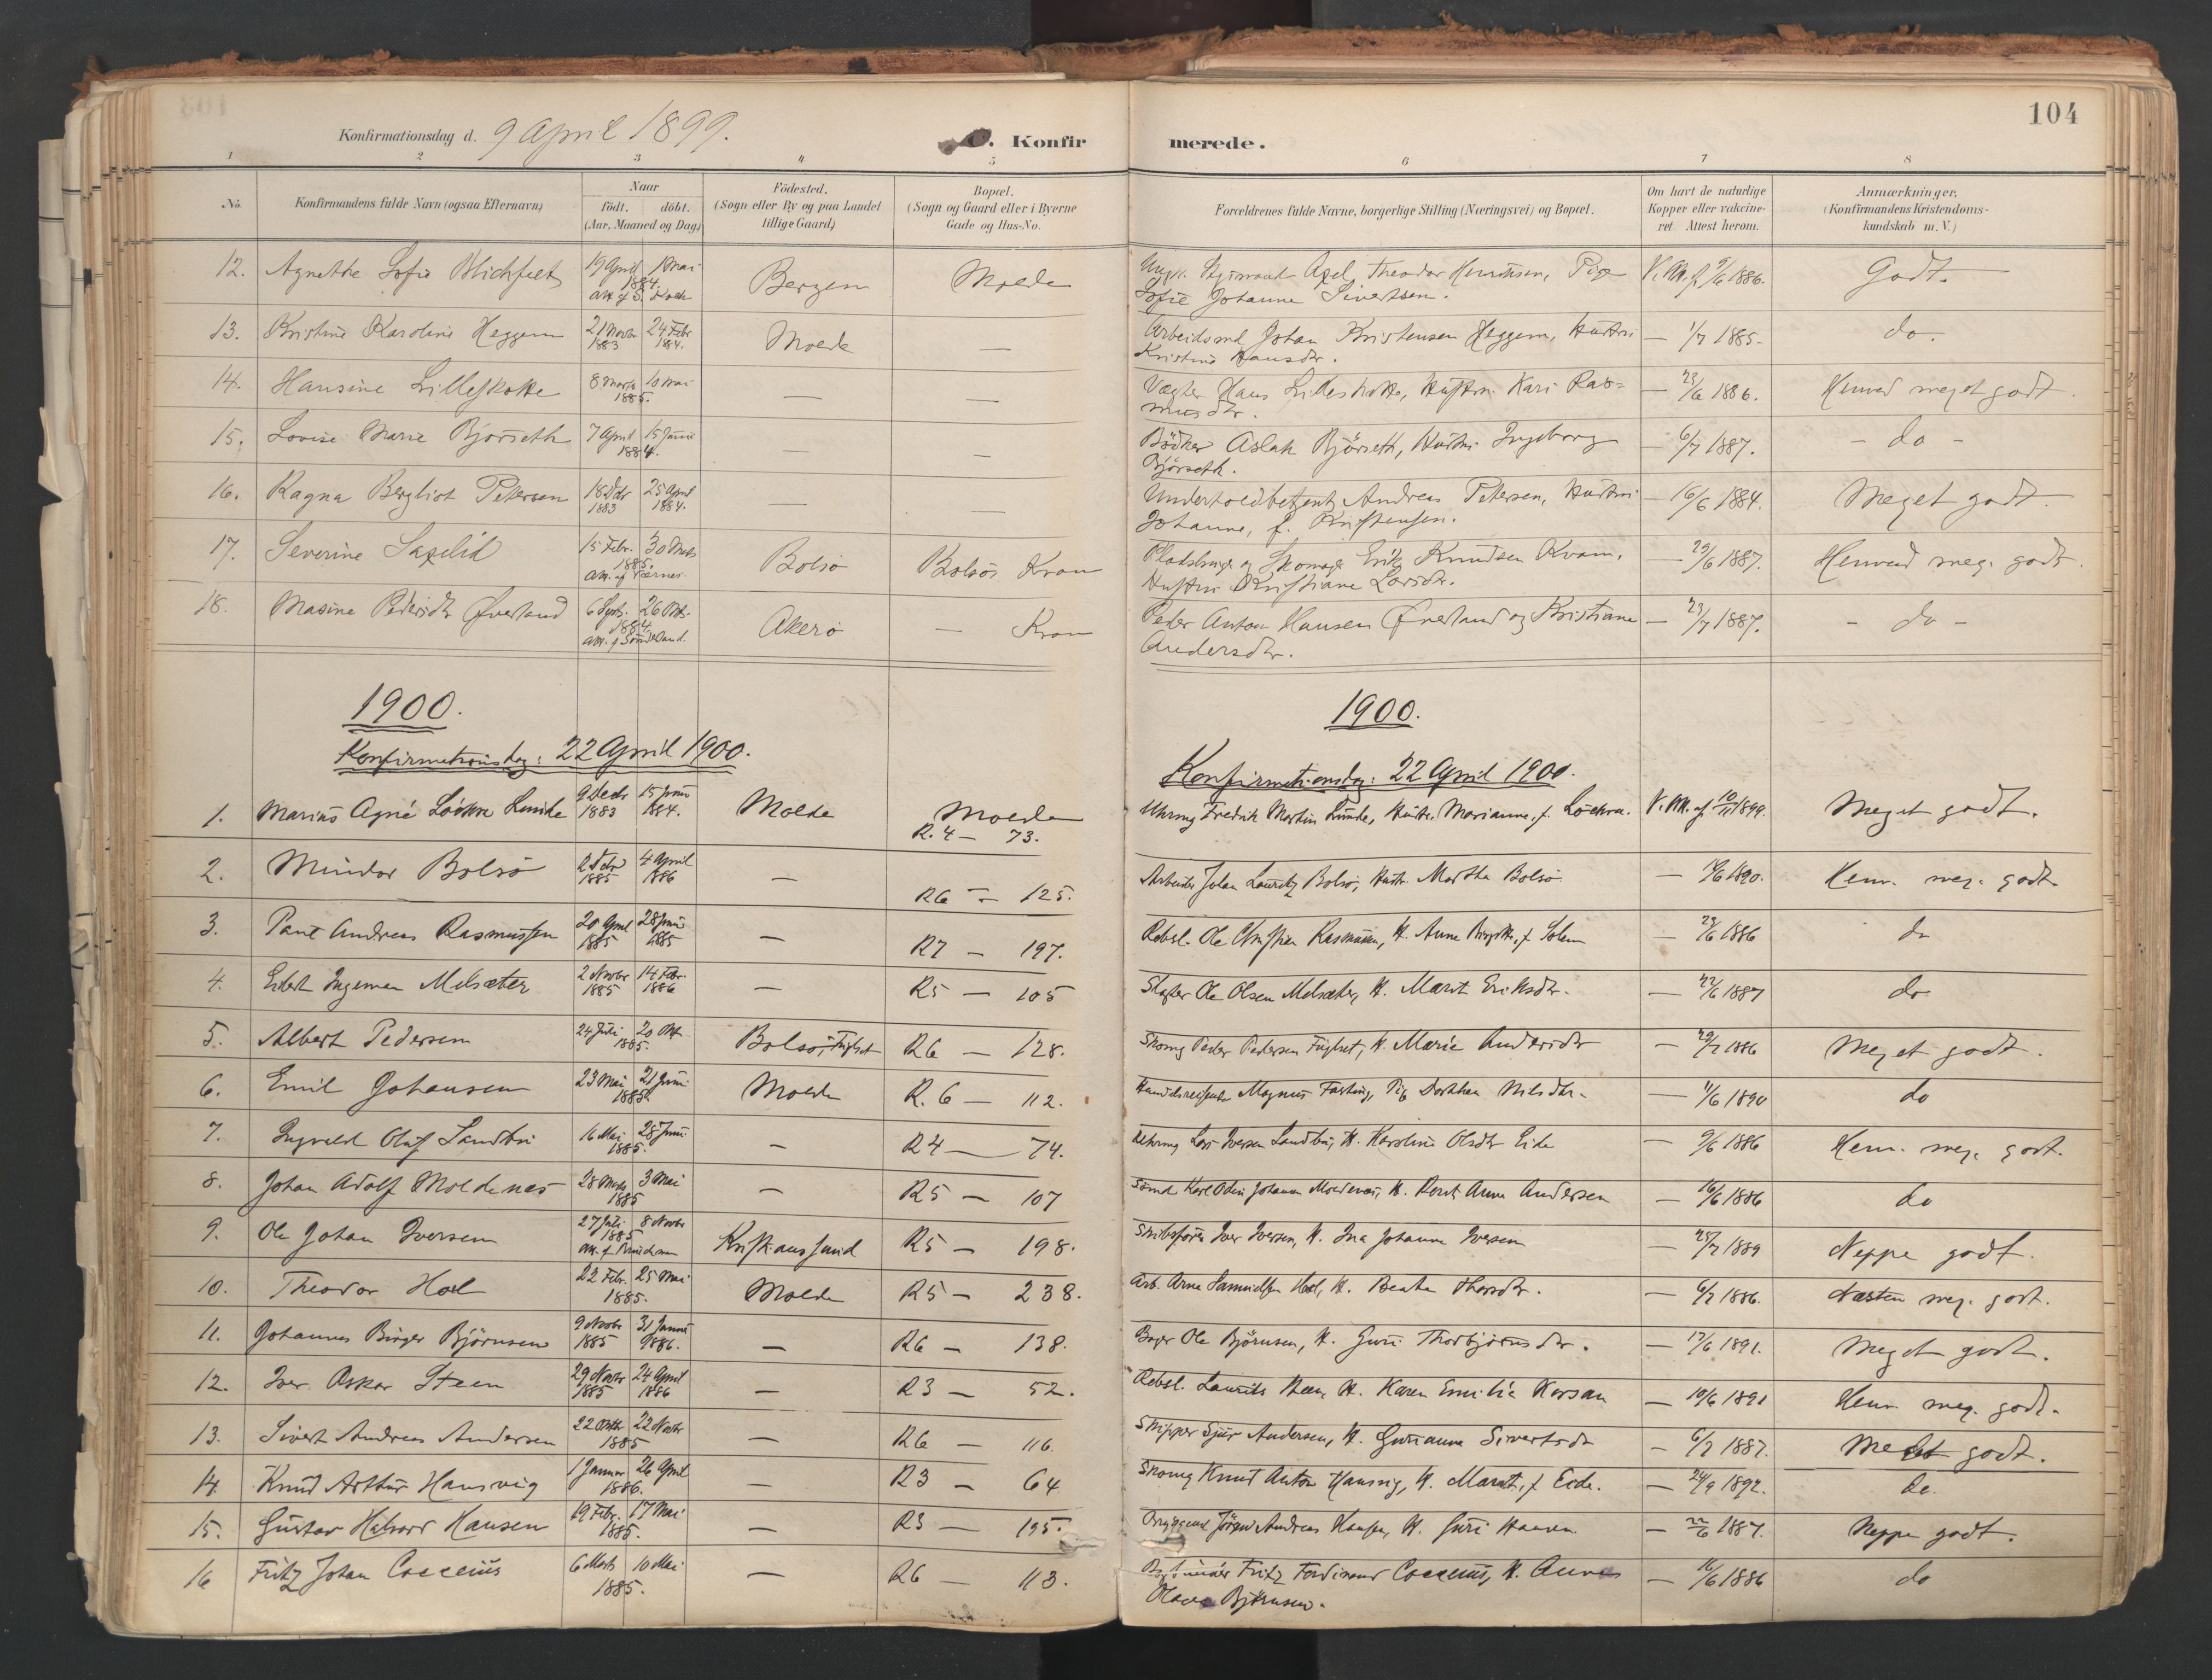 104
Konfirmationsdag d. 9 April 1899.
C. Konfirmerede.
1 2 3 4 5 6 7 8
No. Konfirmandens fulde Navn (ogsaa Efternavn) Naar födt. döbt. (Aar, Maaned og Dag) Födested. (Sogn eller By og paa Landet tillige Gaard) Bopæl. (Sogn og Gaard eller i Byerne Gade og Hus-No. Forældrenes fulde Navne, borgerlige Stilling (Næringsvei) og Bopæl. Om havt de naturlige Kopper eller vakcineret. Attest herom. Anmærkninger. (Konfirmandens Kristendomskundskab m. V.)
12. Agnethe Sofie Blichfeldt 19 April 1 Mai 1884. Bergen Molde Axel Theodor Henriksen, Pige Sofie Johanne Sivertsen. 1886. Godt.
13. Kristine Karoline Heggem 21 Novbr 1883 24 Febr 1884. Molde — Arbeidsmd Johan Kristensen Heggem, Hustru Kristine Hansdtr. — 1/7 1885. do.
14. Hansine Lilleskotte 8 Marts 10 Mai 1885. — — Vægter Hans Lilleskotte, Hustru Kari Rasmusdtr. — 23/6 1886. Henved meget godt.
15. Lovise Marie Bjørseth 7 April 15 Juni 1884. — — Bödker Aslak Björseth, Hustru Ingeborg Björseth. — 6/7 1887. - do -
16. Ragna Bergliot Petersen 18 Dcbr 1883 25 April 1884. — — Andreas Petersen, Hustru Johanne, f. Kristensen. — 16/6 1884. Meget godt.
17. Severine Saxelid 15 Febr. 30 Mrts 1885. Bolsö Bolsö Kvam Skomager Erik Knudsen Kvam, Hustru Kristiane Larsdtr. — 29/6 1887. Henved meg. godt.
18. Masine Pedersdtr Øverland 6 Septr. 26 1884. Akerö — Kvam Peder Anton Hansen Øverland og Kristiane Andersdtr. — 23/7 1887. - do -
1900. 1900.
Konfirmationsdag: 22 April 1900. Konfirmationsdag: 22 April 1900.
1. Marius Agné Löckra Lunde 9 Decbr 1883 15 Juni 1884. Molde Molde R. 4 — 73. Fredrik Martin Lunde, Hustr. Marianne, f. Löckra. 1899. Meget godt.
2. Mindor Bolsö 2 Dcbr 1885 4 April 1886 — R6 — 125. Arbeider Johan Lauritz Bolsö, Hustr. Martha Bolsö — 1890. Henv. meg. godt.
3. Paul Andreas Rasmussen 20 April 1885 28 Juni 1885 — R7 — 197. Rebsl. Ole Christian Rasmussen, H. Anne f. Solem — 1886 do
4. Edert Ingeman Melsæter 2 Novbr 1885 14 Febr. 1886 — R5 — 105 Ole Olsen Melsæter, H. Marit Eriksdtr. — 22/6 1887 do
5. Albert Pedersen 24 Juli 20 1885. Bolsö, Fuglset R6 — 128. Skomg Peder Pedersen Fuglset, H. Marie Andersdtr — 29/7 1886 Meget godt.
6. Emil Johansen 23 Mai 21 Juni 1885. Molde R. 6 — 112. Handelsreisende Magnus Pig Dorthea Nilsdtr. — 11/6 1890 do
7. Ingvald Oluf Sandbu 16 Mai 28 Juni 1885. — R4 — 74. Lars Iversen Sandbu, H. Karoline Olsdtr Eide — 9/6 1886 Henv. meg. godt.
8. Johan Adolf Moldenæs 28 Marts 3 Mai 1885 — R5 — 107 Sömd Karl Odin Johansen Moldenæs, H. Anne Andersen — 16/6 1886 do
9. Ole Johan Iversen 27 Juli 8 Novbr 1885 Kristianssund R5 — 198. Skibsförer Iver Iversen, H. Ina Johanne Iversen — 25/7 1889 Neppe godt.
10. Theodor Hoel 22 Febr. 25 Mai 1885. Molde R5 — 238. Arb. Arne Samuelsen Hoel, H. Beate Thorsdtr. — 6/7 1886. Næsten meg. godt.
11. Johannes Birger Björnsen 9 Novbr 1885 31 Januar 1886. — R6 — 138. Bager Ole Björnsen, H. Guri Thorbjörnsdtr. — 17/6 1891. Meget godt.
12. Iver Oskar Steen 29 Novbr 1885 24 April 1886 — R3 — 52. Rebsl. Laurits Steen, H. Karen Emilie Korsan — 10/6 1891 Henv. meg. godt.
13. Sivert Andreas Andersen 22 Oktbr 22 Novbr 1885 — R6 — 116. Skipper Sjur Andersen, H. Gurianna Sivertsdtr — 6/7 1887. Meget godt.
14 Knud Arthur Hansvig 1 Januar 26 April 1886. — R3 — 64 Skomg Knut Anton Hansvig, H. Marit, f. Eide. — 24/9 1892. do.
15. Gustav Halvard Hansen 19 Febr. 17 Mai 1885. — R5 — 195. Jörgen Andreas Hansen, H. Guri — 22/6 1887. Neppe godt.
16 Fritz Johan Coccius 6 Marts 10 Mai 1885. — R6 — 113. Fritz Ferdinand Coccius, H. Anne Olava Björnsen. — 16/6 1886 do